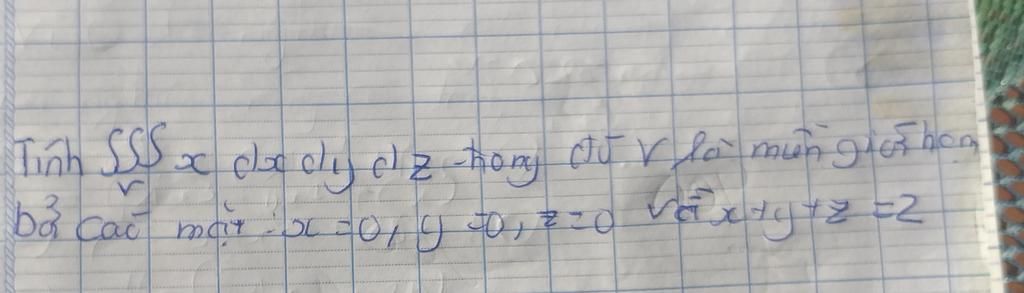 Tính ∭ x dx dy dz trong đó V là miền giới hạn
V
bởi các mặt: x = 0, y = 0, z = 0 và x + y + z = 2